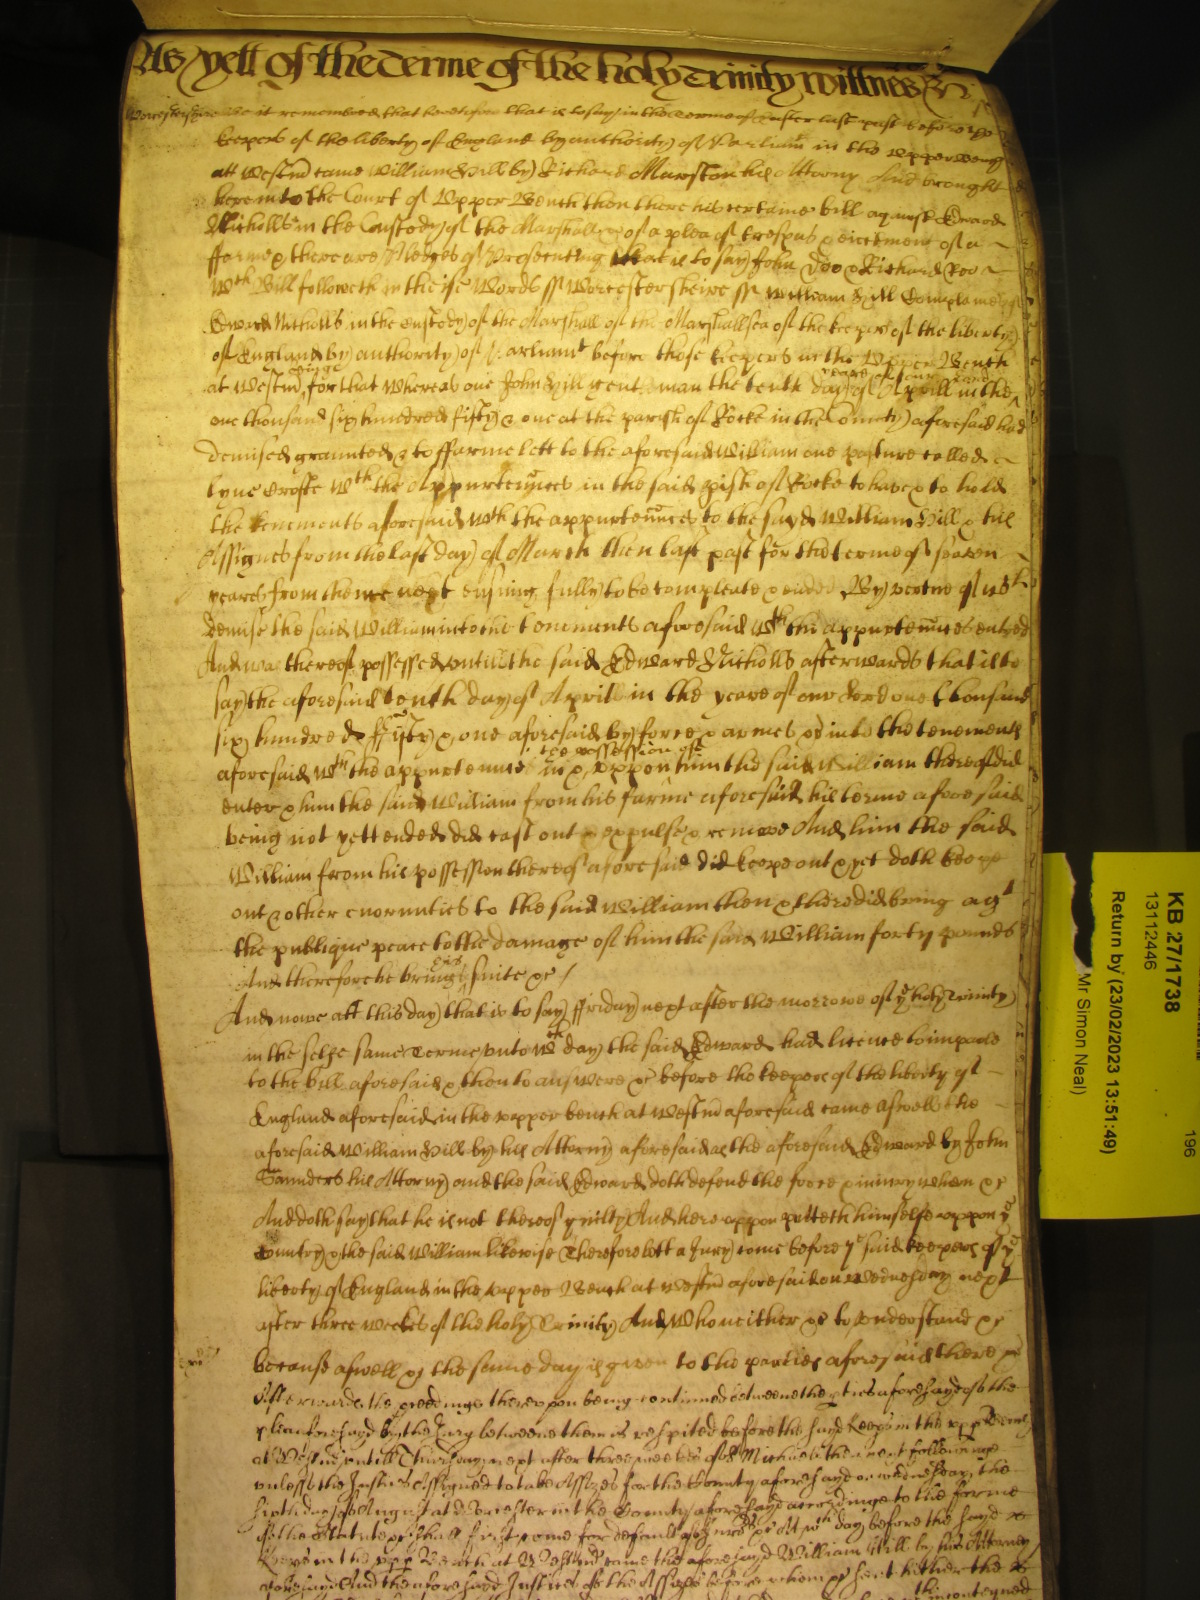 As yett of the Terme of the holy Trinity Wittnes &c
Worcestershire Be it remembred that heretofore that is to say in the terme of Easter last past before the
keepers of the liberty of England by authority of Parliamt in the upper bench
att Westmr came William Hill by Richard Marston his Attorny And brought
here into the Court of Upper Bench then there his certaine bill against Edward
Nicholls in the Custody of the Marshall &c of a plea of trespas & eictement of a
ffarme & there are Pledges of Prosecuting that is to say John Doo & Richard Roo
Wch Bill followeth in these Words ss Worcestersheire ss William Hill Complaines of
Edward Nicholls in the custody of the Marshall of the Marshallsea of the keepers of the liberty
of England by authority of Parliamt before those keepers in the Upper Bench
at Westmr beinge for that Whereas one John Hill gent man the tenth day of Aprill in the yeare of our Lord
one thousand six hundred fifty & one at the parish of Rocke in the County aforesaid had
demised graunted & to ffarme lett to the aforesaid William one pasture called
lyne crofte Wth the Appurtenñces in the said pish of Rocke to have & to hold
the tenements aforesaid wth the appurtenñces to the sayd William Hill & his
Assignes from the last day of March then last past for the terme of seaven
yeares from thence next ensuing fully to be compleate & ended By vertue of wch
demise the said William into the tenements aforesaid Wth the appurtenñces entred
And was thereof possessed untill the said Edward Nicholls afterwards that is to
say the aforesaid tenth day of Aprill in the yeare of our Lord one thousand
six hundred fifty & one aforesaid by force & armes &c into the tenements
aforesaid Wth the appurtennces in & uppon the possession of him the said William thereof did
enter & him the said William from his farme aforesaid his terme aforesaid
being not yett ended did cast out expulse & remove And him the said
William from his possession thereof aforesaid did keepe out & yet doth keepe
out & other enormities to the said William then & there did bring agt
the publique peace to the damage of him the said William forty pounds
And therefore he bringeth suite &c /
And nowe att this day that is to say ffriday next after the morrowe of ye holy Trinity
in the selfe same Terme unto wch day the said Edward had licence to imparle
to the bill aforesaid & then to answere &c before the keepers of the liberty of
England aforesaid in the upper bench at Westmr aforesaid came aswell the
aforesaid William Hill by his Attorny aforesaid as the aforesaid Edward by John
Saunders his Attorny and the said Edward doth defend the force & iniury when &c
And doth say that he is not thereof guilty And hereuppon putteth himselfe uppon ye
Country & the said William likewise Therefore lett a Jury come before ye said keepers of ye
liberty of England in the upper Bench at Westmr aforesaid on Wednesday next
after three weekes of the holy Trinity And Who neither &c to understand &c
because aswell &c the same day is given to the parties aforesaid there &c
Afterwards the pceedings thereuppon being continued betweene the pties aforesayd of the
plea aforesayd by the Jury betweene them is respited before the sayd Keeps in the upp Bench
at Westmr untill Thursday next after three weekes of St Michaell then next followinge
unlesse the Justices Assigned to take Assizes for the County aforesayd on Wednesday the
sixth day of August at Worcester in the County aforesayd accordinge to the forme
of the Statute &c shall first come for default of Jurors &c At wch day before the sayd
Keeps in the upp Bench at Westmr came the aforesayd William Hill by his Attorney
aforesayd And the aforesayd Justices of the Assizes before whom &c sent hither their
KB 27/1738
13112446
Return by (23/02/2023 13:51:49)
Mr Simon Neal)
196